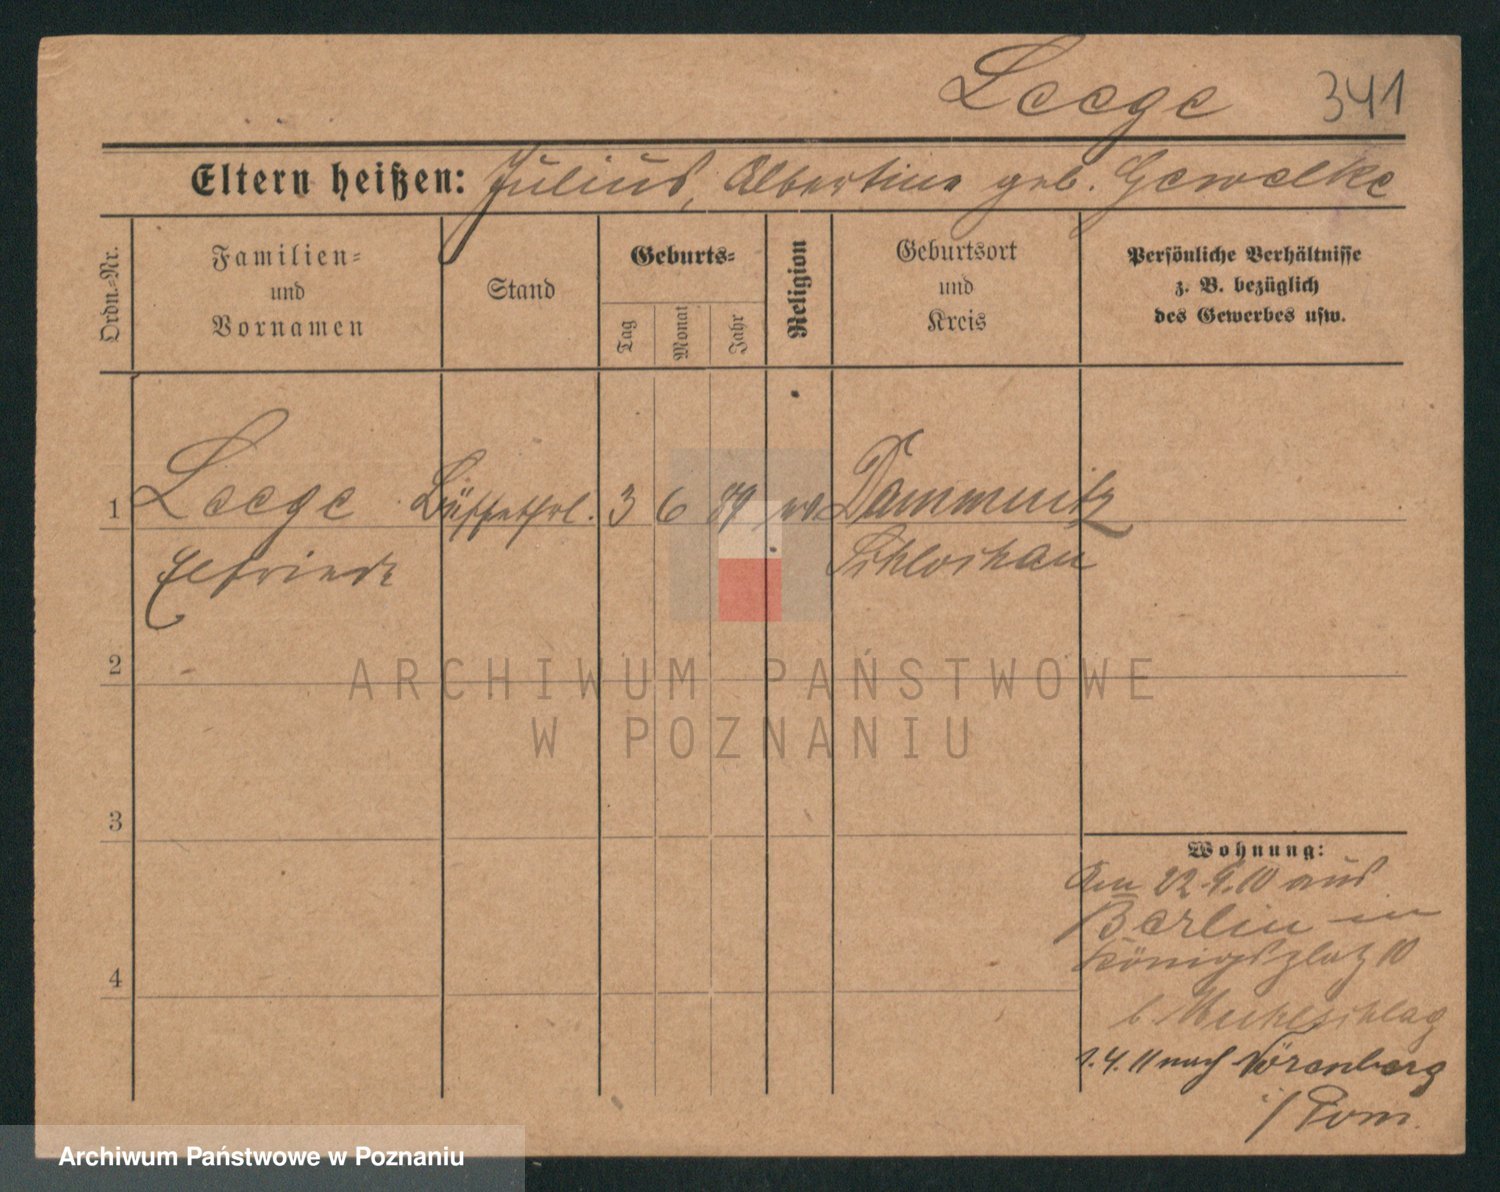 Leege 341
Eltern heißen: Julius, Albertine geb. Gewelke
Ordn.-Nr.
Familien-
und
Vornamen
Stand
Geburts-
Tag
Monat
Jahr
Religion
Geburtsort
und
Kreis
Persönliche Verhältnisse
z. B. bezüglich
des Gewerbes usw.
1 Leege Büffetfrl. 3 6 89 ev. Dammnitz
Elfriede Schlochau
2
3
4
Wohnung:
Am 22.9.10 aus
Berlin in
Königsplatz 10
b.
1.4.11 nach Nörenberg
i/Pom.
ARCHIWUM PAŃSTWOWE
W POZNANIU
Archiwum Państwowe w Poznaniu